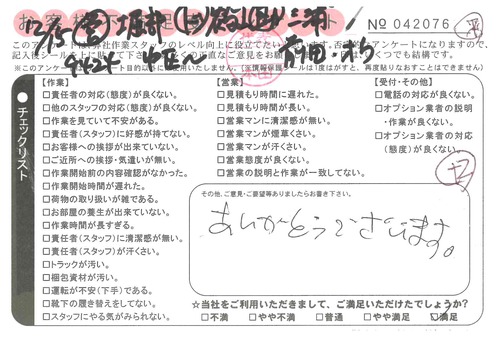 No 042076
このアンケートは弊社作業スタッフのレベル向上に役立てたい
アンケートになりますので、
記入後シールを上に貼って下さ
直なご意見をお願い
くつでも結構です。
チェックリスト
【作業】
□責任者の対応(態度)が良くない。
□他のスタッフの対応(態度)が良くない。
□作業を見ていて不安がある。
□責任者(スタッフ)に好感が持てない。
□お客様への挨拶が出来ていない。
□ご近所への挨拶・気遣いが無い。
□作業開始前の内容確認がなかった。
□作業開始時間が遅れた。
□荷物の取り扱いが雑である。
□お部屋の養生が出来ていない。
□作業時間が長すぎる。
□責任者(スタッフ)に清潔感が無い。
□責任者(スタッフ)が汗くさい。
□トラックが汚い。
□梱包資材が汚い。
□運転が不安(下手)である。
□靴下の履き替えをしてない。
□スタッフにやる気がみられない。
【営業】
□見積もり時間に遅れた。
□見積もり時間が長い。
□営業マンに清潔感が無い。
□営業マンが煙草くさい。
□営業マンが汗くさい。
□営業態度が良くない。
□営業の説明と作業が一致してない。
【受付・その他】
□電話の対応が良くない。
□オプション業者の説明・作業が良くない。
□オプション業者の対応(態度)が良くない。
その他、ご意見・ご要望等ありましたらお書き下さい。
ありがとうございます。
☆当社をご利用いただきまして、ご満足いただけたでしょうか?
□不満 □やや不満 □普通 □やや満足 □満足